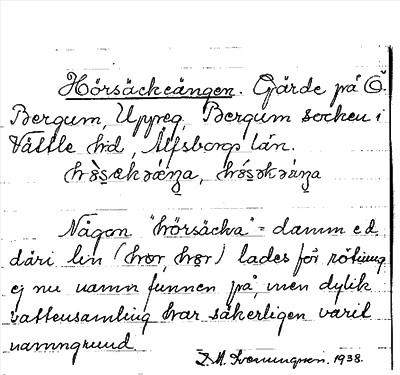 Hörsäckeängen. Gärde på Ö.
Bergum, Uppreg, Bergum socken i
Vättle hd, Älfsborgs län.
Någon "hörsäcka" = damm e.d.
däri lin (hör) lades för rötning
ej nu namn funnen på, men dylik
vattensamling har säkerligen varit
namngrund.
1938.